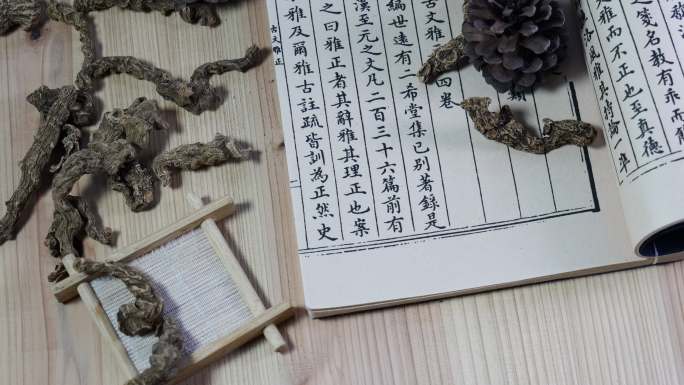 之箋名教有乖而解
雅而不正也至真德
古風雅其持論一準
類
古文雅 四卷
編世遠有二希堂集已別著錄是
漢至元之文凡二百三十六篇前有
之曰雅正者其辭雅其理正也案
雅及爾雅古註疏皆訓為正然史
古文雅正